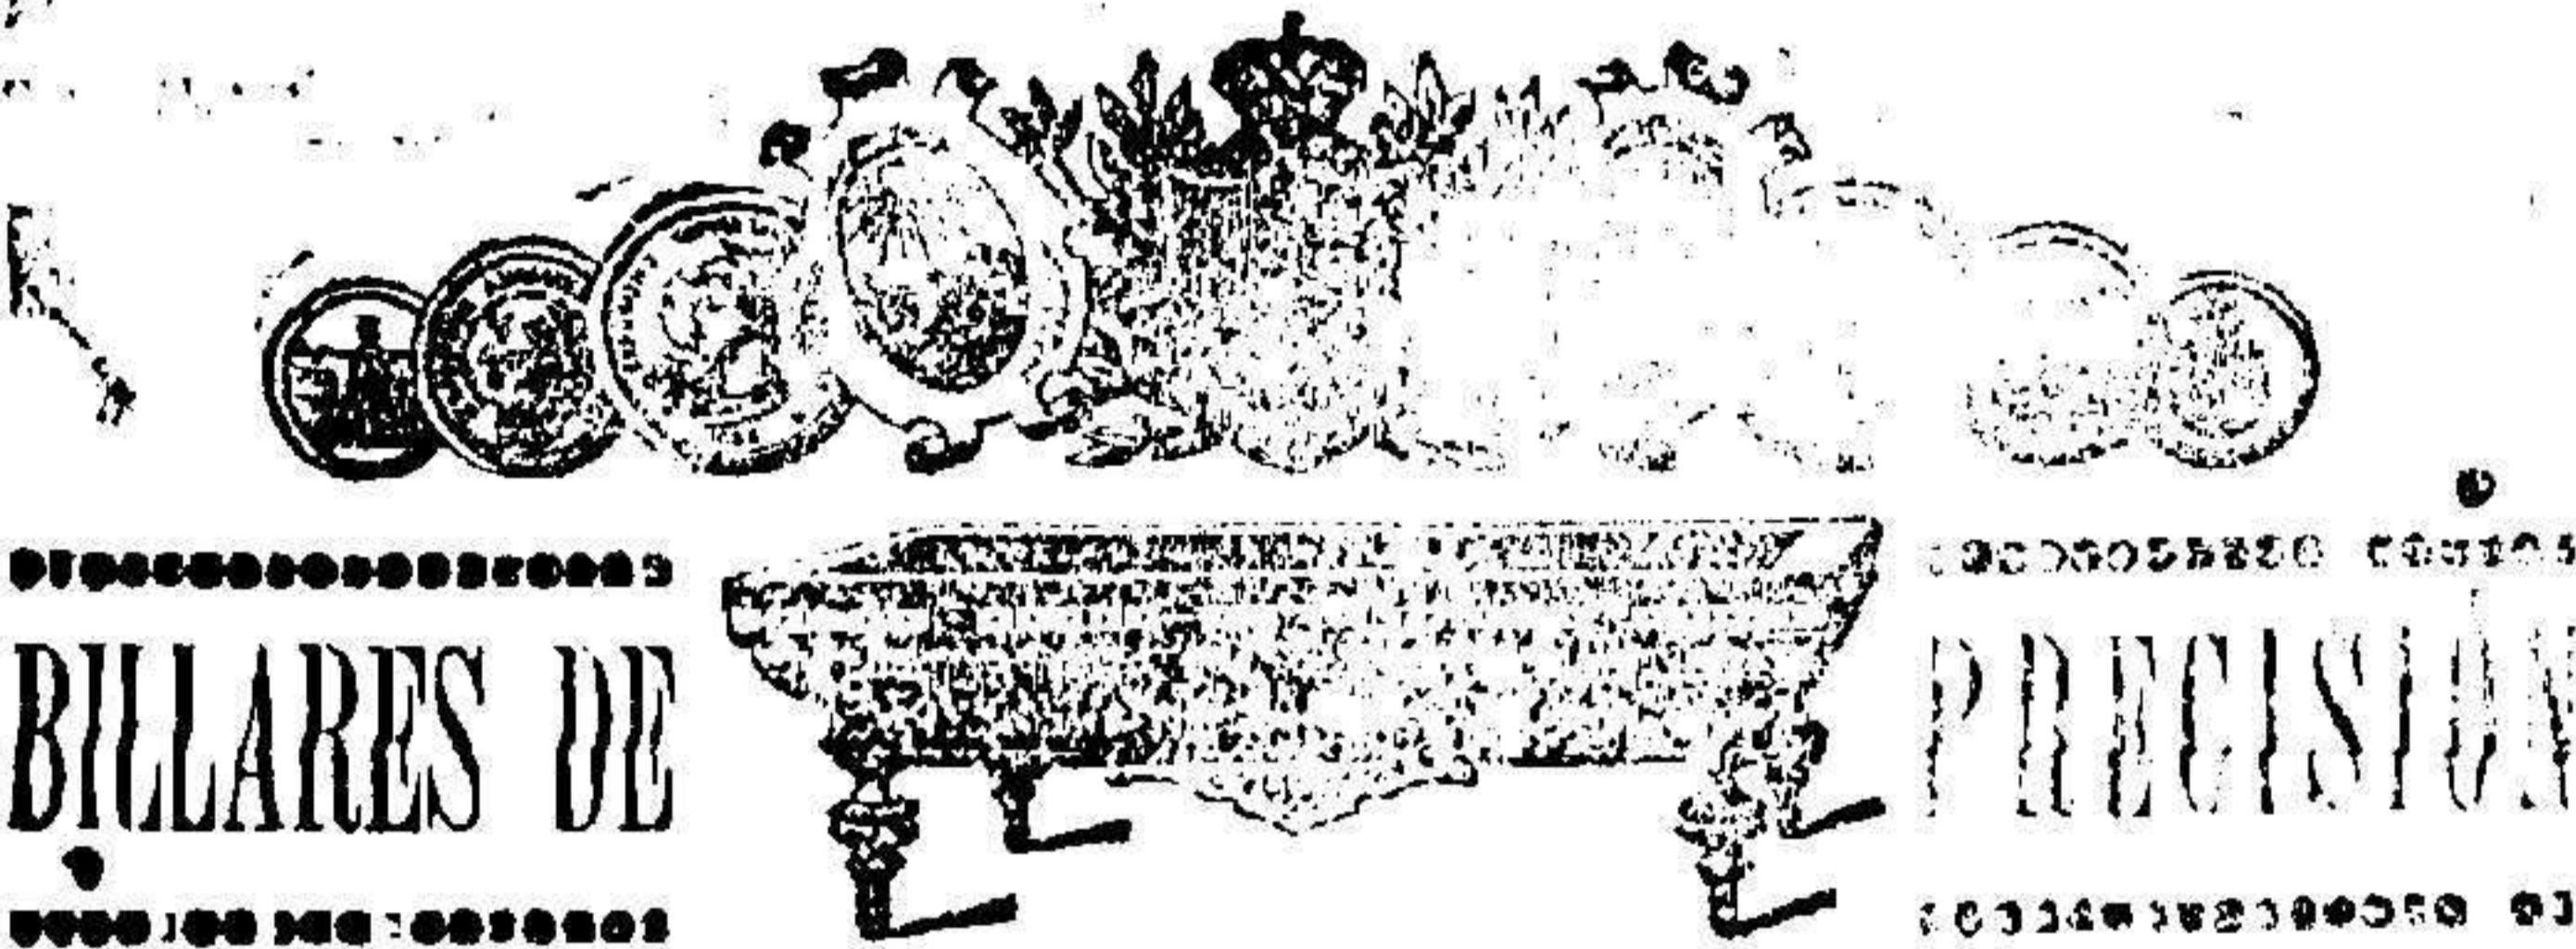 BILLARES DE PRECISION